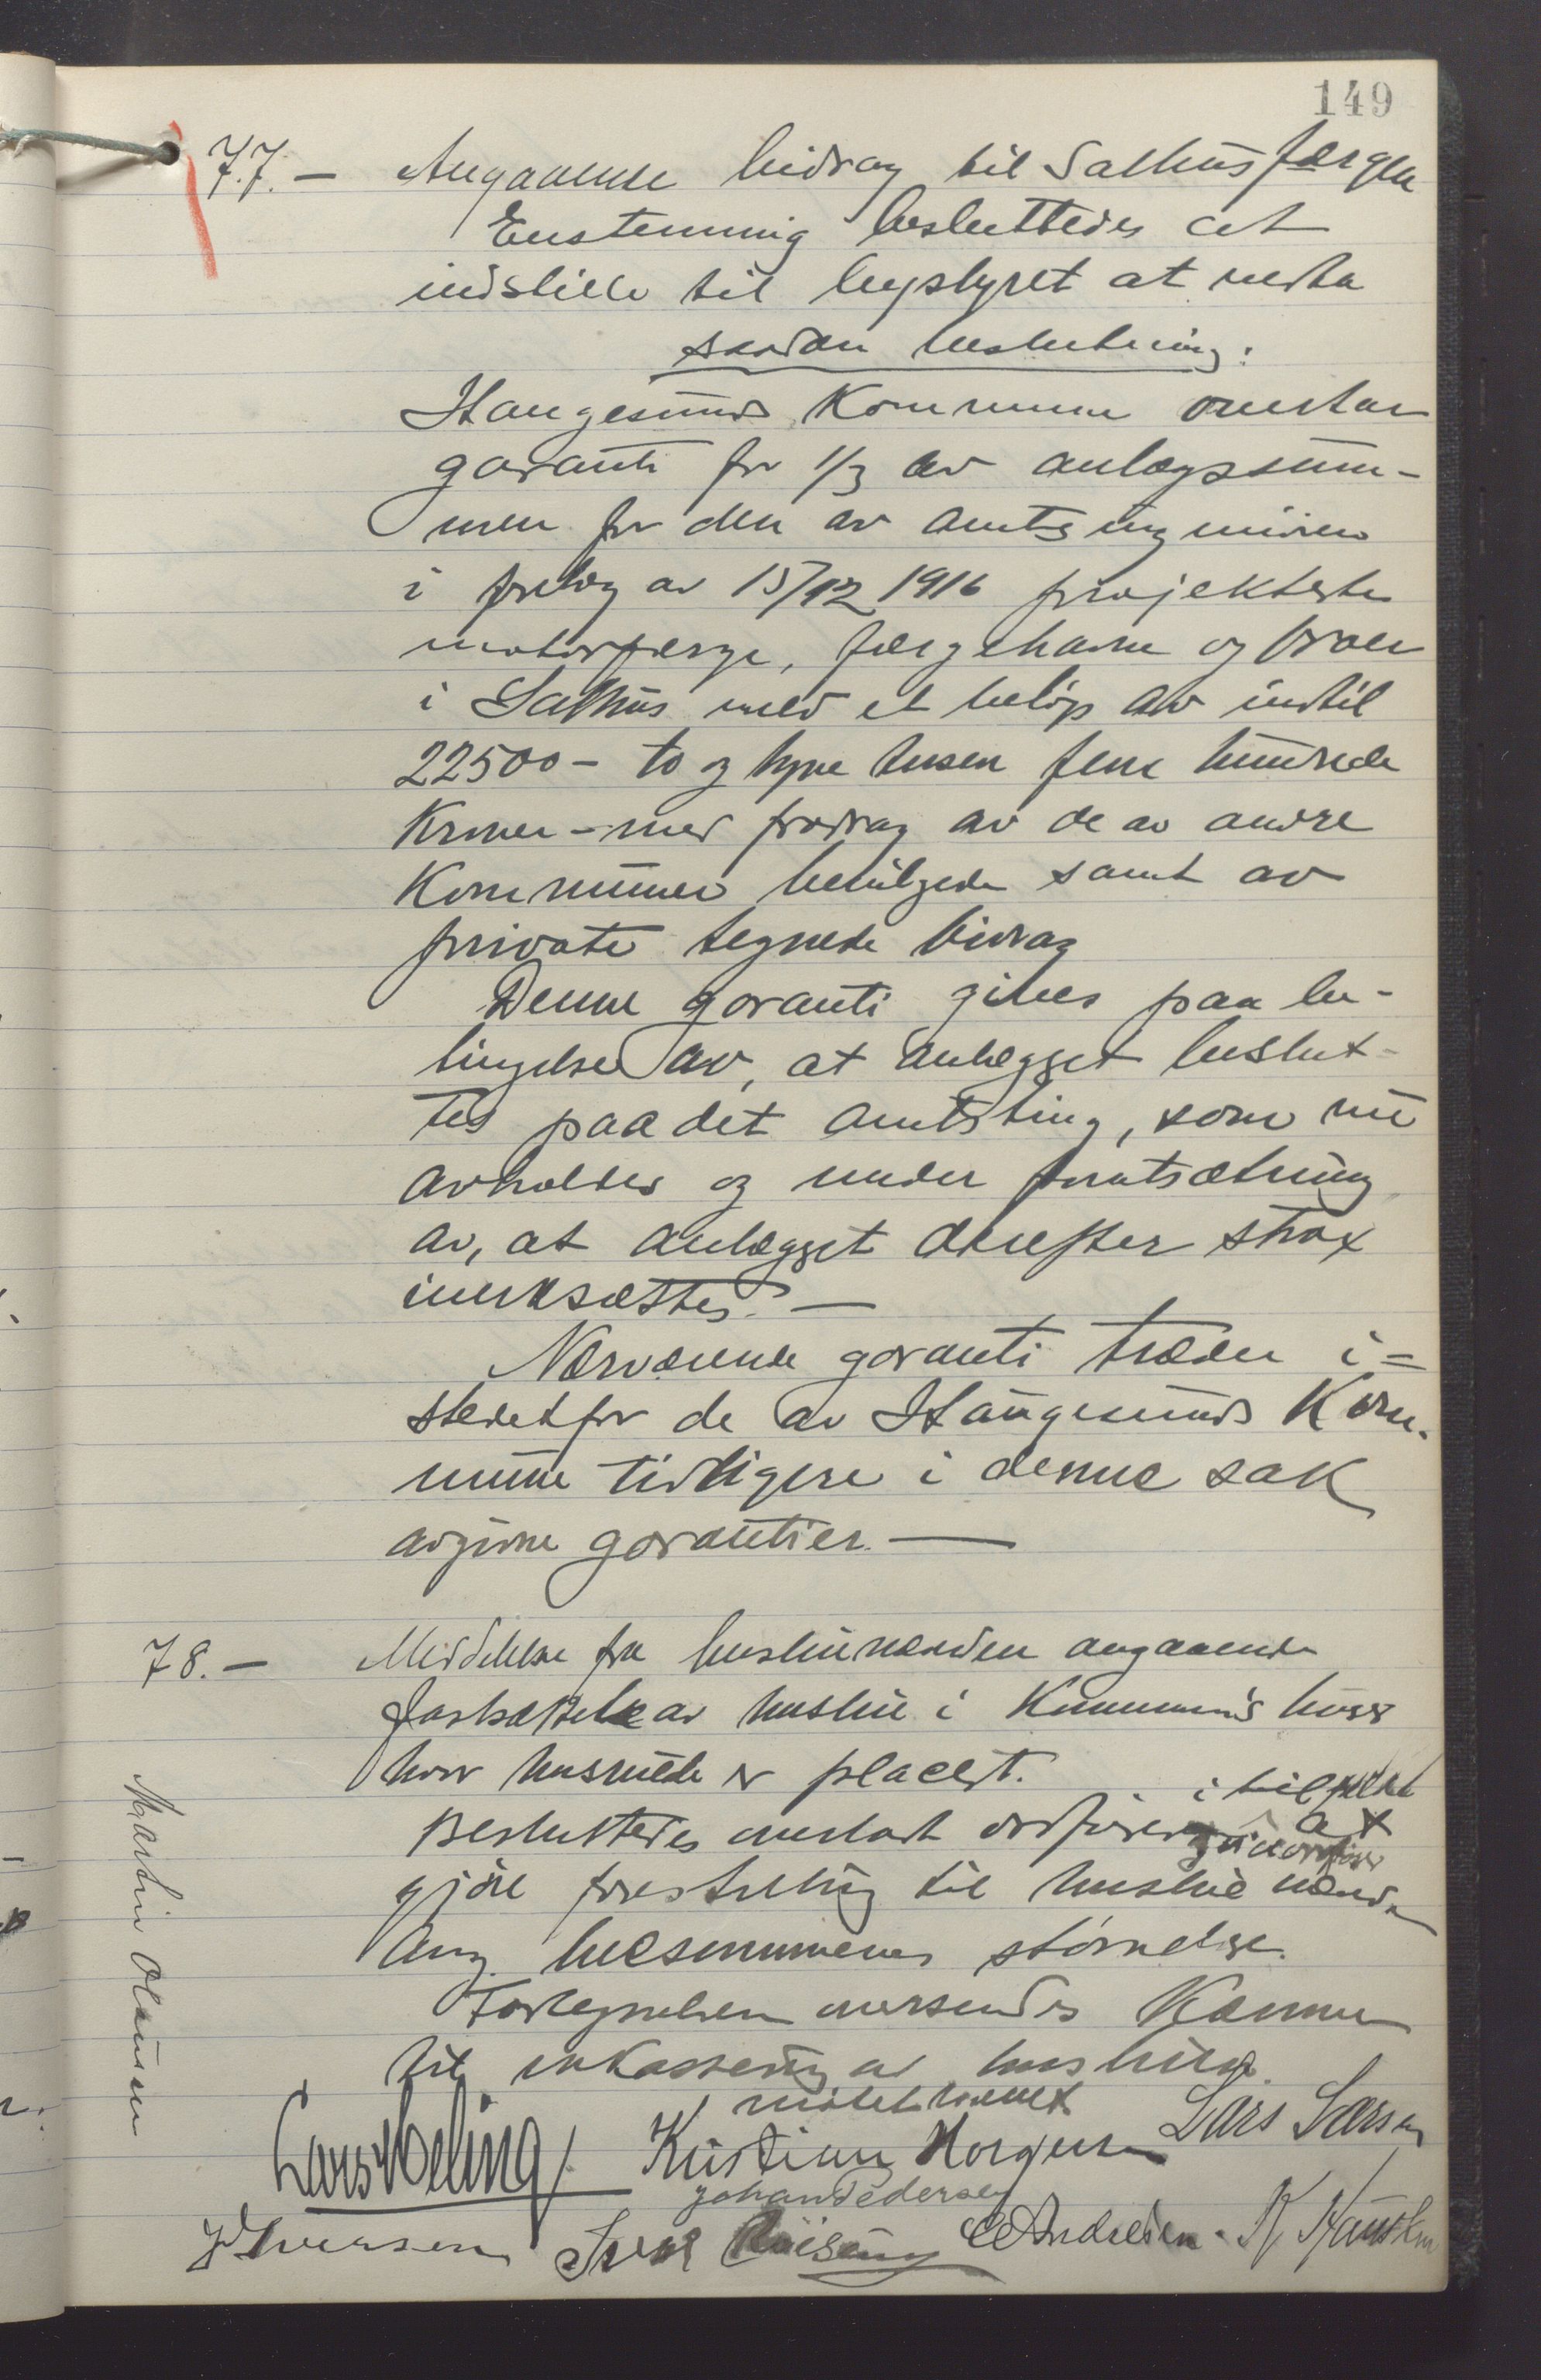 149
77.— Angaaende bidrag til Salhusfærgen
Enstemmig besluttedes at
indstille til bystyret at vedta
saadan beslutning:
Haugesunds Kommune overtar
garanti for 1/3 av anlægssum-
men for den av amtsingeniøren
i forslag av 15/12 1916 projekterte
motorfærge, færgehavne og broer
i Salhus med et beløp av indtil
22500 - to og tyve tusen fem hundrede
Kroner - med fradrag av de av andre
Kommuner bevilgede samt av
private tegnede bidrag
Denne garanti gives paa be-
tingelse av, at anlægget beslut-
tes paa det amtsting, som nu
avholdes og under forutsætning
av, at anlægget derefter strax
iverksættes. —
Nærværende garanti træder i=
stedetfor de av Haugesunds Kom-
mune tidligere i denne sak
avgivne garantier. —
78.— Meddelelse fra husleienævnden angaaende
fastsættelse av husleie i Kommunens huse
hvor husvilde er placert.
i tilfelde
Besluttedes anmodet ordfører at
viceordfører
gjøre forestilling til husleienævnden
ang. leiesummenes størrelse.
Fortegnelsen oversendes Kæmner
til inkassering av husleien.
møtet hævet
Martin Olausen
Lars Meling Kristian Horgen Lars Larsen
Johan Pedersen
J Iversen Andresen. K Knutsen